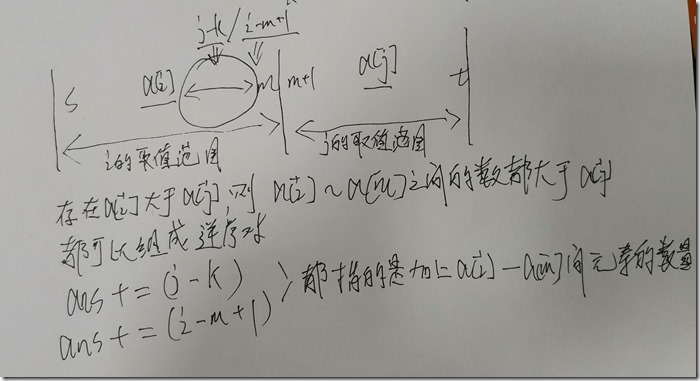 j-k/i-m+1
s a[i] m m+1 a[j] t
i的取值范围 j的取值范围
存在a[i]大于a[j]则 a[i]~a[m]之间的数都大于a[j]
都可以组成逆序对
ans+=(j-k)
ans+=(i-m+1)
都指的是加上a[i]-a[m]间元素的数量